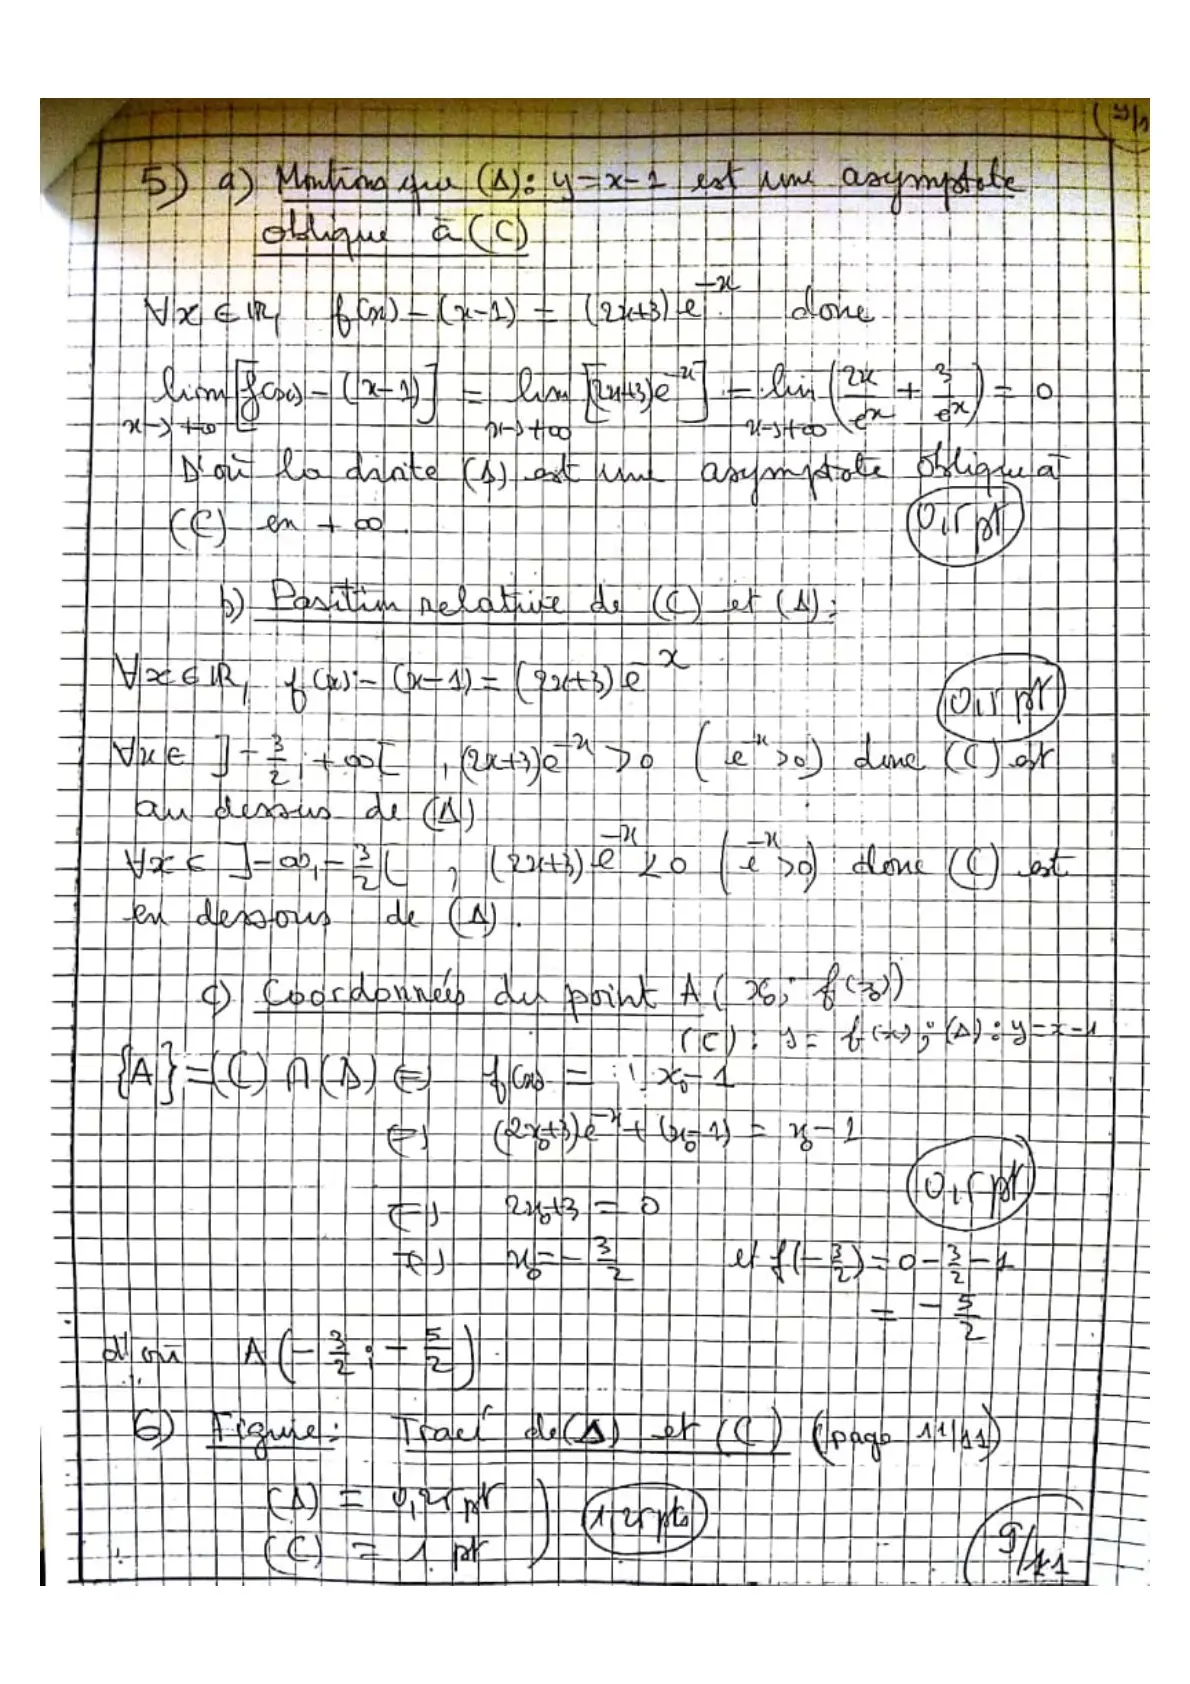 5) a) Montrons que (Δ): y = x-1 est une asymptote
oblique à (C)
∀x ∈ IR, f(x) - (x-1) = (2x+3)e^{-x} donc
lim_{x→+∞} [f(x) - (x-1)] = lim_{x→+∞} [(2x+3)e^{-x}] = lim_{x→+∞} (2x/e^x + 3/e^x) = 0
D'où la droite (Δ) est une asymptote oblique à
(C) en +∞.
0,5 pt
b) Position relative de (C) et (Δ):
∀x ∈ IR, f(x) - (x-1) = (2x+3)e^{-x}
0,5 pt
∀x ∈ ]-3/2; +∞[, (2x+3)e^{-x} > 0 (e^{-x} > 0) donc (C) est
au dessus de (Δ)
∀x ∈ ]-∞, -3/2[, (2x+3)e^{-x} < 0 (e^{-x} > 0) donc (C) est
en dessous de (Δ).
c) Coordonnées du point A(x₀; f(x₀))
(C): y = f(x); (Δ): y = x-1
{A} = (C) ∩ (Δ) ⇔ f(x₀) = x₀-1
⇔ (2x₀+3)e^{-x} + (x₀-1) = x₀-1
0,5 pt
⇔ 2x₀+3 = 0
⇔ x₀ = -3/2 et f(-3/2) = 0 - 3/2 - 1
= -5/2
d'où A(-3/2; -5/2)
6) Figure: Tracé de (Δ) et (C) (page 11/11)
(Δ) = 0,25 pt
1,25 pts
(C) = 1 pt
9/11